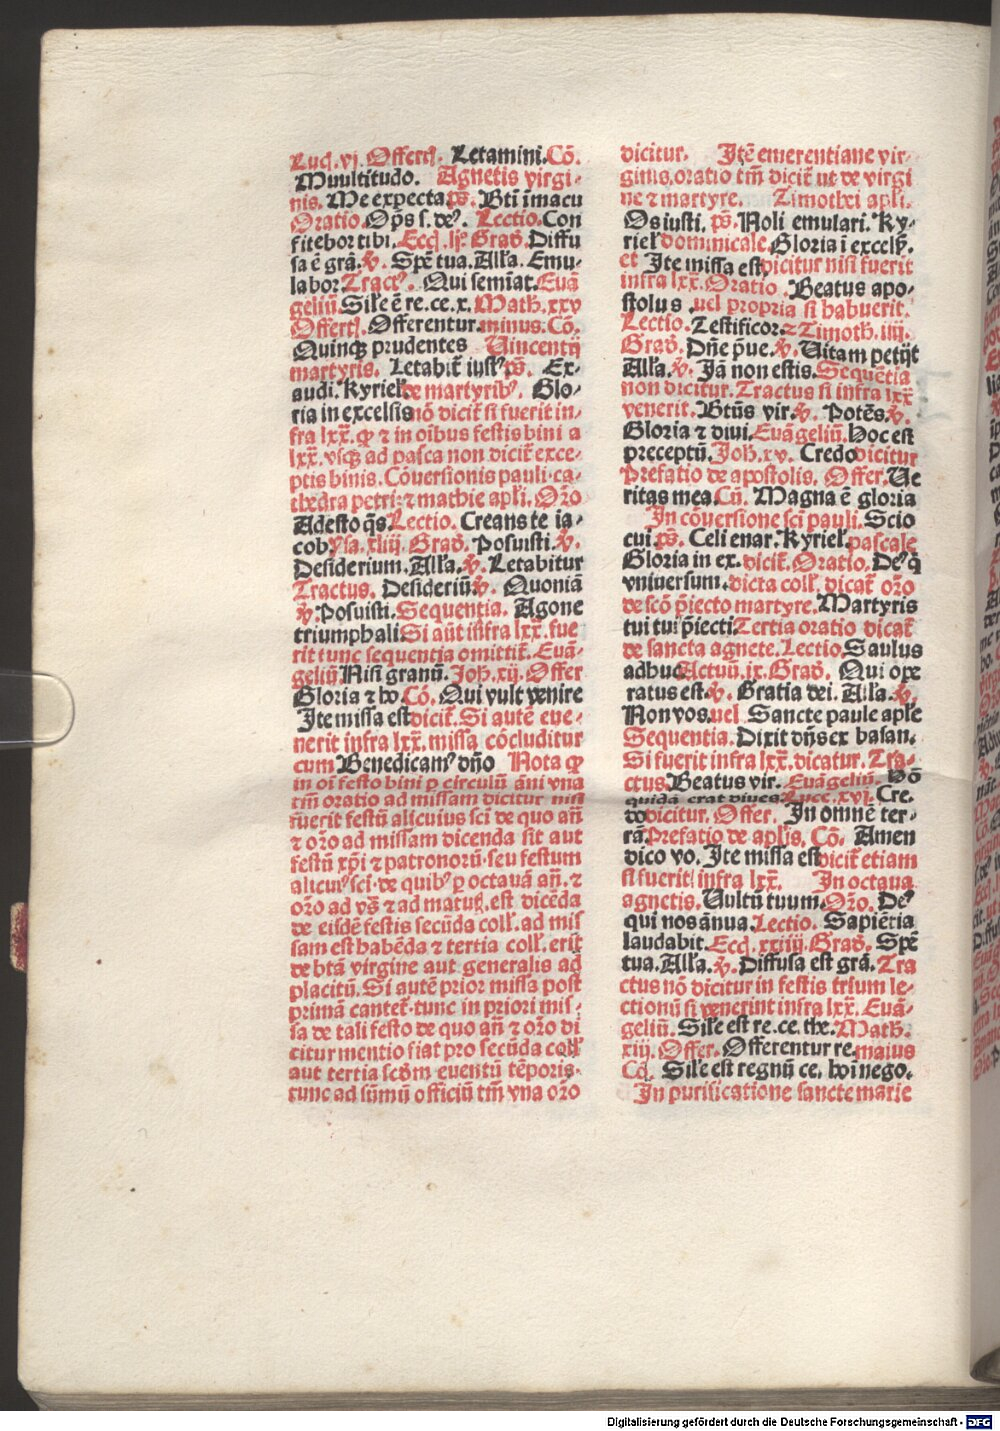 Luc̃. vj. Offert̃. Letamini. Cõ.
Muultitudo. Agnetis virgi-
nis. Me expecta. ps̃. Bti ĩmacu
Oratio. Op̃s s. de⁹. Lectio. Con
fitebor tibi. Eccl̃. lj⁹ Grad̃. Diffu
sa ẽ grã. ℣. Spẽ tua. Alľa. Emu-
labor Tract⁹. Qui semiat̃. Euã
geliũ. Sile ẽ re. ce. x. Math. xxv
Offert̃. Offerentur. minus. Cõ.
Quinqꝫ prudentes Uincentij
martyris. Letabit̃ iust⁹. ps̃. Ex-
audi. Kyriel̃ de martyrib⁹. Glo-
ria in excelsis nõ dicit̃ si fuerit in-
fra lxx̃. ꝙ ⁊ in oibus festis bini a
lxx̃. vsqꝫ ad pasca non dicit̃ exce-
ptis binis. Cõuersionis pauli. ca-
thedra petri: ⁊ mathie apl̃i. Orõ
Adesto q̃s. Lectio. Creans te ia-
cob Ysa. xliij. Grad̃. Posuisti. ℣.
Desiderium. Alľa. ℣. Letabitur
Tractus. Desideriũ. ℣. Quoniã
℣. Posuisti. Sequentia. Agone
triumphali. Si aũt infra lxx̃. fue
rit tunc sequentia omittit̃. Euã-
geliũ. Nisi granũ. Joh. xij. Offer
Gloria ⁊ ho. Cõ. Qui vult venire
Jte missa est dicit̃. Si autẽ eue-
nerit infra lxx̃. missa cõcluditur
cum Benedicam⁹ dño Nota ꝙ
in oi festo bini ꝑ circulũ ãni vna
tm̃ oratio ad missam dicitur nisi
fuerit festũ alicuius sci de quo añ
⁊ orõ ad missam dicenda sit aut
festũ xp̃i ⁊ patronorũ. seu festum
alicui⁹ sci. de quib⁹ ꝑ octauã añ. ⁊
orõ ad vs̃ ⁊ ad matuꝭ. est dicẽda
de eisdẽ festis secũda coll̃. ad mis
sam est habẽda ⁊ tertia coll̃. erit
de btã virgine aut generalis ad
placitũ. Si autẽ prior missa post
primã cantet̃. tunc in priori mis-
sa de tali festo de quo añ ⁊ orõ di
citur mentio fiat pro secũda coll̃
aut tertia scdm euentũ tẽporis.
tunc ad sũmũ officiũ tm̃ vna orõ
dicitur. Jtẽ emerentiane vir-
ginis. oratio tm̃ dicit̃ ut de virgi
ne ⁊ martyre. Timothei apl̃i.
Os iusti. ps̃. Noli emulari. Ky-
riel̃ dominicale. Gloria ĩ excelß.
et Jte missa est dicitur nisi fuerit
infra lxx̃. Oratio. Beatus apo-
stolus. uel propria si habuerit.
Lectio. Testificor. 2. Timoth. iiij.
Grad̃. Dñe p̃ue. ℣. Uitam petijt
Alľa. ℣. Jã non estis. Sequẽtia
non dicitur. Tractus si infra lxx̃
venerit. Btũs vir. ℣. Potẽs. ℣.
Gloria ⁊ diui. Euãgeliũ. Hoc est
preceptũ. Joh. xv. Credo dicitur
Prefatio de apostolis. Offer. Ue
ritas mea. Cũ. Magna ẽ gloria
In cõuersione sci pauli. Scio
cui ps̃. Celi enar. Kyriel̃. pascale
Gloria in ex. dicit̃. Oratio. De⁹ q̃
vniuersum. dicta coll̃. dicat̃ orõ
de scõ p̃iecto martyre. Martyris
tui tui p̃iecti. Tertia oratio dicat̃
de sancta agnete. Lectio. Saulus
adhuc Actuũ. ix. Grad̃. Qui ope
ratus est. ℣. Gratia dei. Alľa. ℣.
Non vos. uel Sancte paule apľe
Sequentia. Dixit dñs ex basan.
Si fuerit infra lxx̃. dicatur. Tra-
ctus. Beatus vir. Euãgeliũ. Hõ
quidã erat diues Luce. xvj. Cre-
do dicitur. Offer. In omnẽ ter-
rã. Prefatio de apl̃is. Cõ. Amen
dico vo. Jte missa est dicit̃ etiam
si fuerit infra lxx̃. In octaua
agnetis. Uultũ tuum. Orõ. De⁹
qui nos ãnua. Lectio. Sapiẽtia
laudabit. Eccl̃. xxiiij. Grad̃. Spẽ
tua. Alľa. ℣. Diffusa est grã. Tra
ctus nõ dicitur in festis trium le-
ctionũ si venerint infra lxx̃. Euã-
geliũ. Siľe est re. ce. the. Math.
xiij. Offer. Offerentur re. maius
Cõ. Siľe est regnũ ce. hoi nego.
In purificatione sancte marie
Digitalisierung gefördert durch die Deutsche Forschungsgemeinschaft - DFG